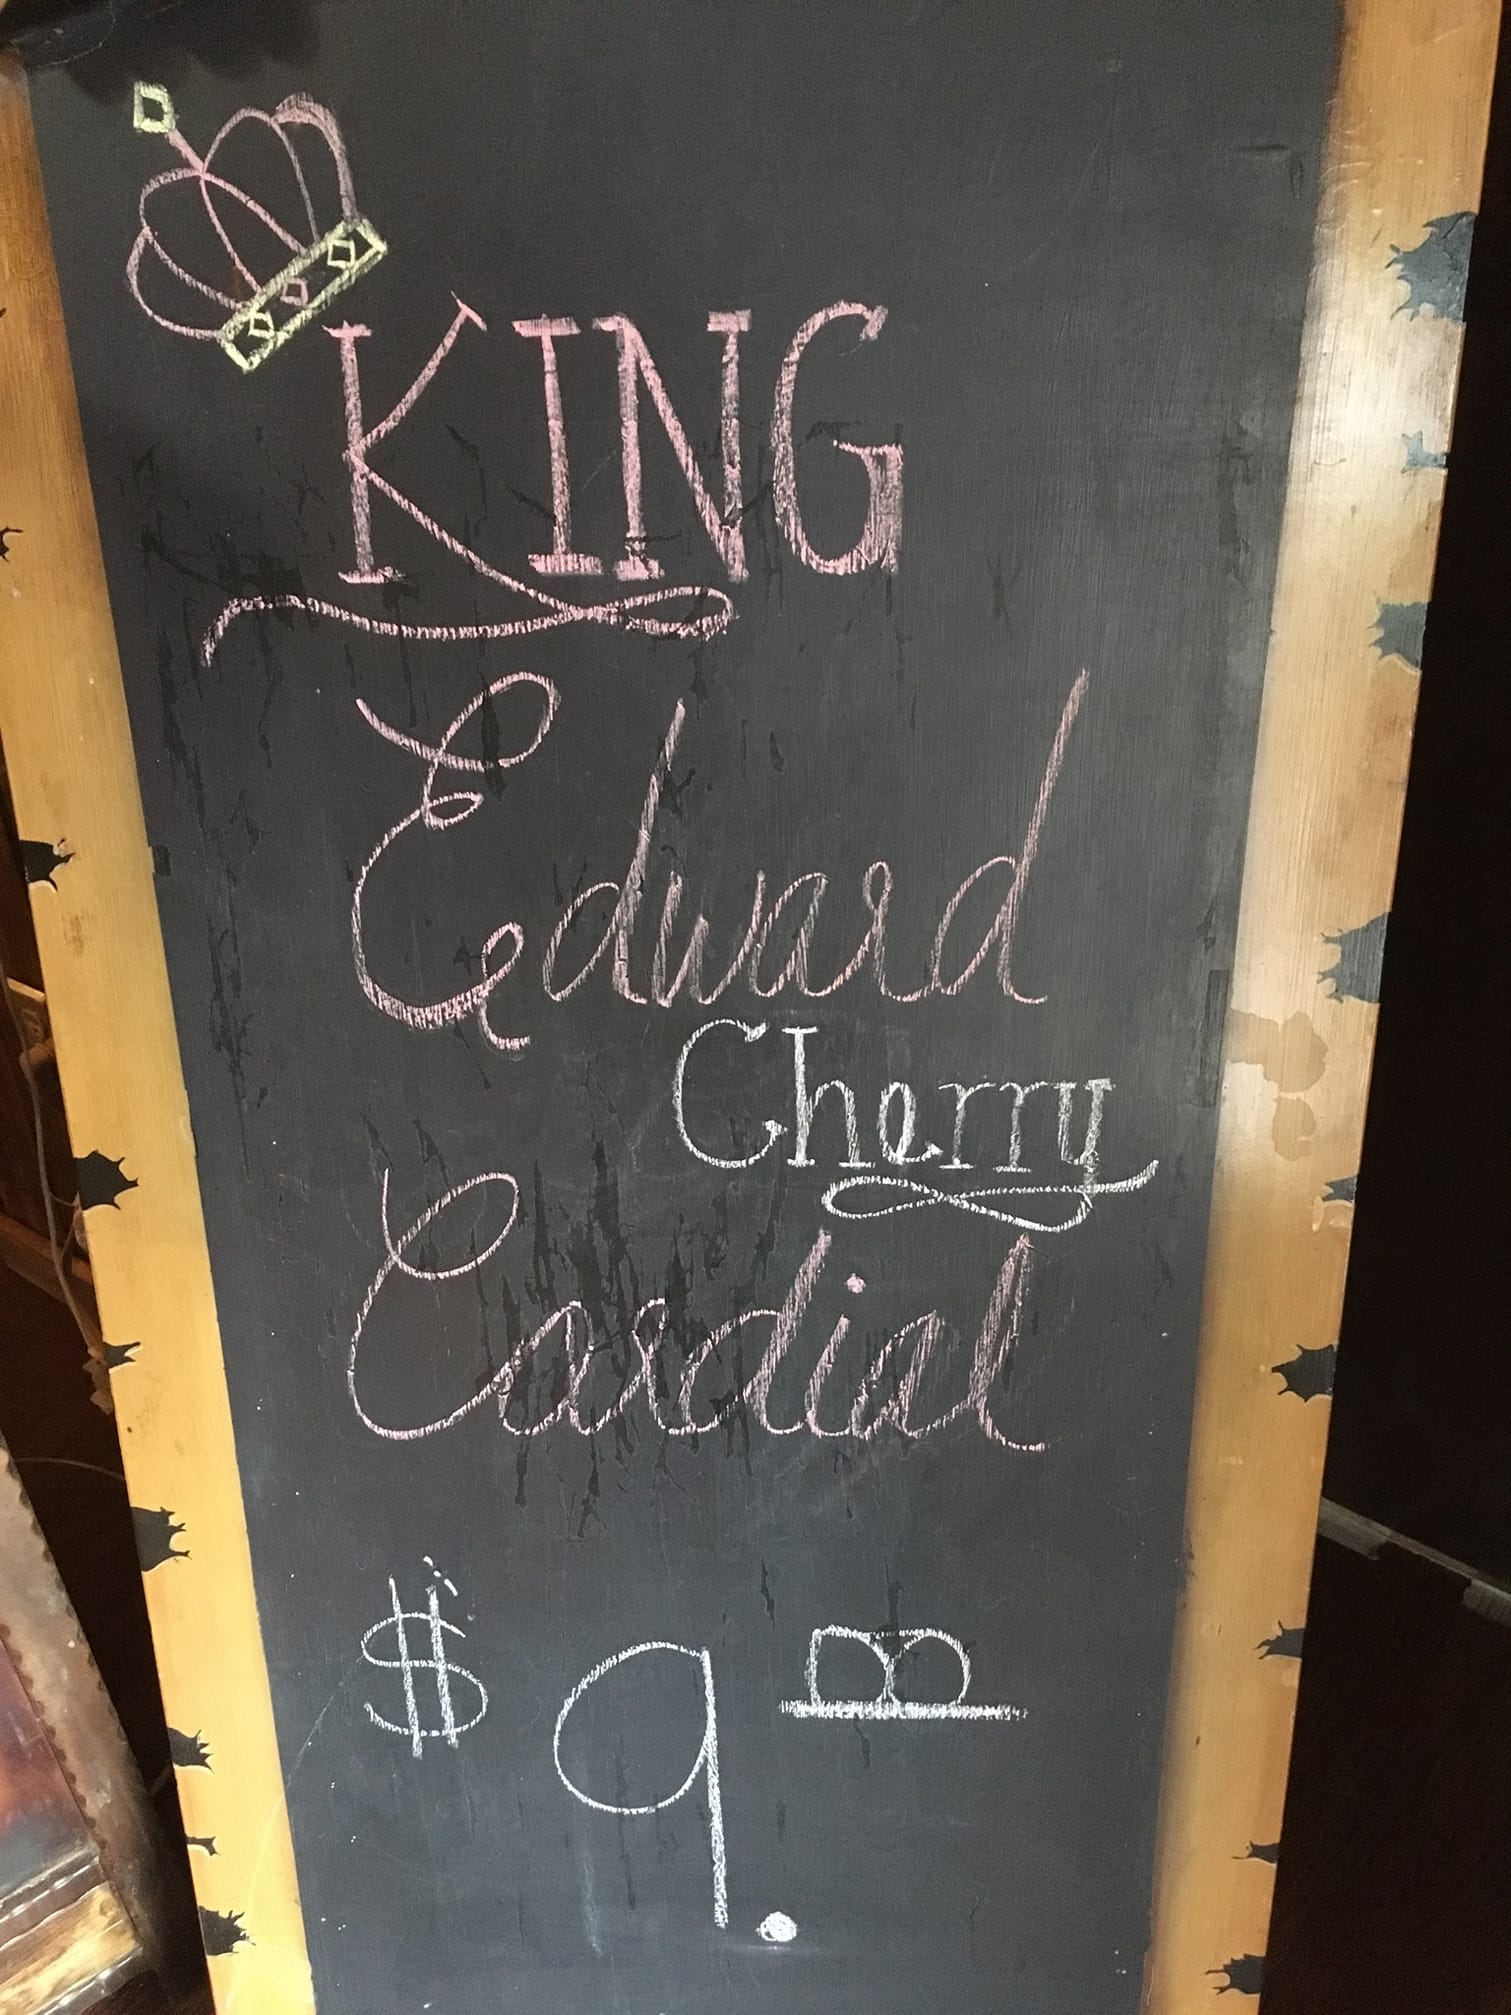 KING
Edward
Cherry
Cardial
$ 9.00